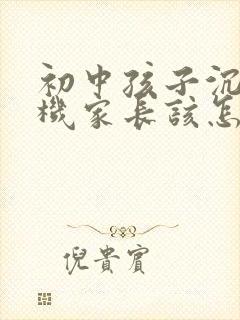 初中孩子沉
機家長該怎
倪貴賓